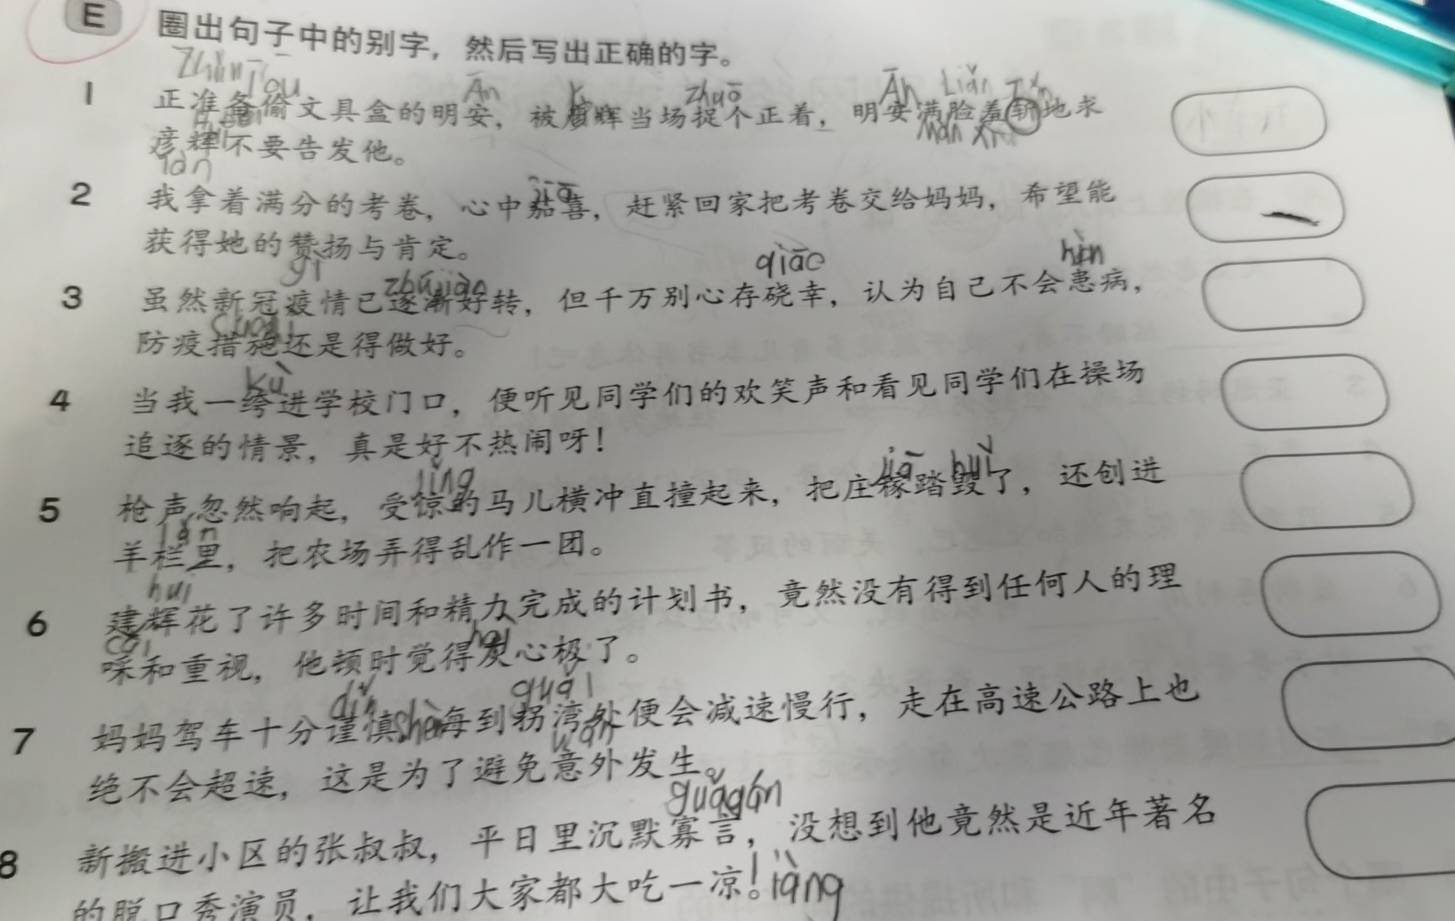 E 圈出句子中的别字，然后写出正确的字。
Zhǔn Tōu
Ān zhuō Ān Liǎn
1 正准备偷文具盒的明安，被彦辉当场捉个正着，明安满脸羞惭地求
彦辉不要告发他。
2 我拿着满分的考卷，心中嘉喜，赶紧回家把考卷交给妈妈，希望能
获得她的赞扬与肯定。
yì zhújiàn qiáo hùn
3 虽然新冠疫情已逐渐好转，但千万别心存硗幸，认为自己不会患病，
防疫措施还是得做好。
kù
4 当我一绔进学校门口，便听见同学们的欢笑声和看见同学们在操场
追逐的情景，真是好不热闹呀！
jīng jià huǐ
5 枪声忽然响起，受惊的马儿横冲直撞起来，把庄稼踏毁了，还创进
lán
羊栏里，把农场弄得乱作一团。
hui
6 建辉花了许多时间和精力完成的计划书，竟然没有得到任何人的理
cǎi
睬和重视，他顿时觉得灰心极了。
guǎi
7 妈妈驾车十分谨慎，每到拐湾处便会减速慢行，走在高速公路上也
wān
绝不会超速，这是为了避免意外发生。
guǎgán
8 新搬进小区的张叔叔，平日里沉默寡言，没想到他竟然是近年著名
的脱口秀演员，让我们大家都大吃一凉！ iàng